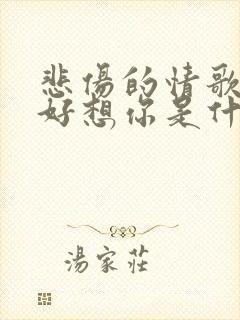 悲傷的情歌
好想你是什
湯家莊